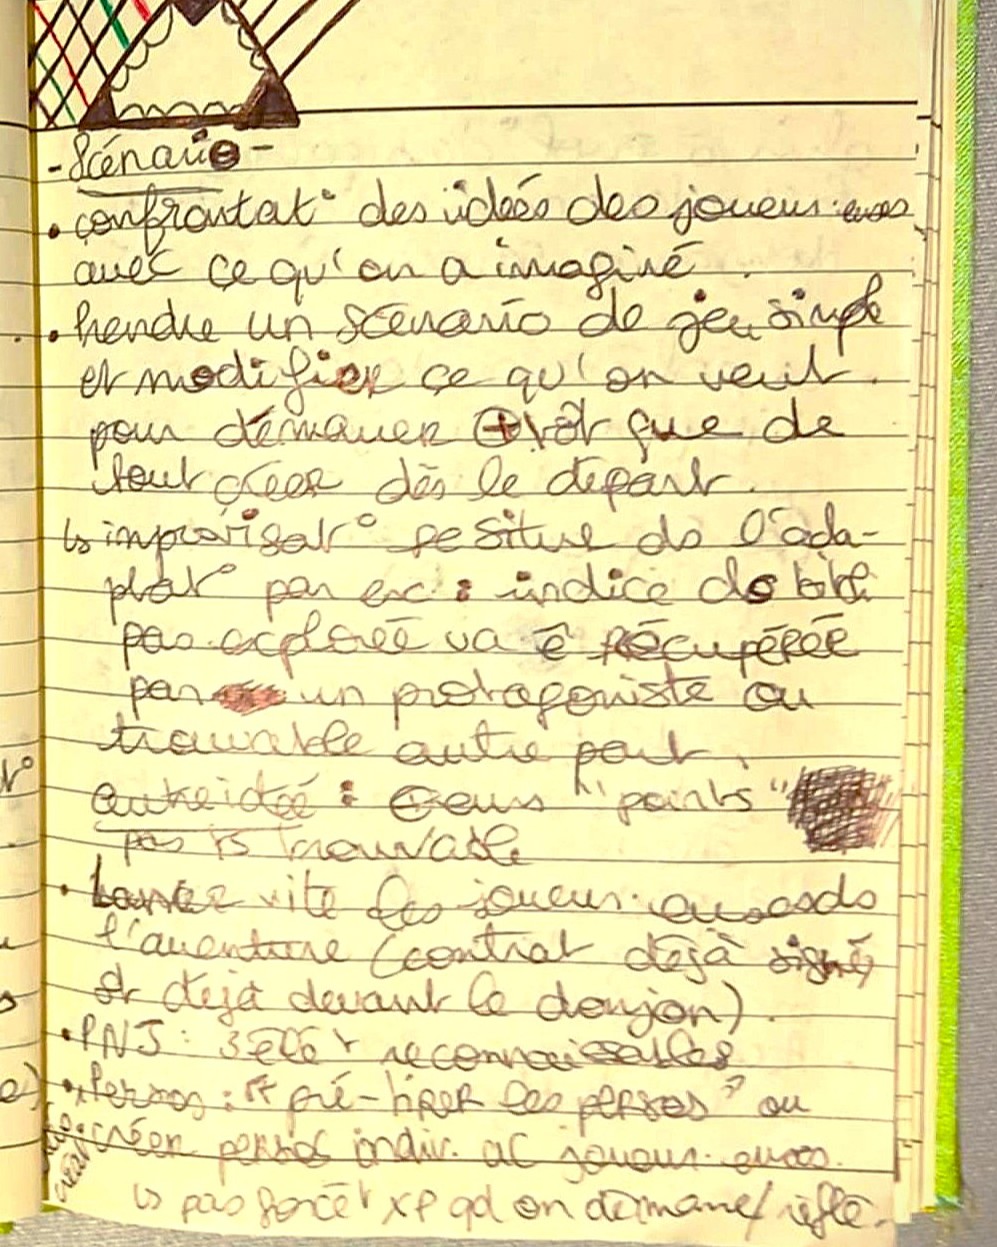 -Scénario-
• confrontat° des idées des joueurs·euses
avec ce qu'on a imaginé
• Prendre un scénario de jeu simple
et modifier ce qu'on veut.
pour démarrer ⊕tôt que de
tout créer dès le départ.
↳ improvisat° se situe ds l'ada-
ptat° par ex : indice ds bibli
pas explorée va ê récupérée
par un protagoniste ou
trouvable autre part.
autre idée : ⊕eurs "points"
pas ts trouvable
• Lancer vite les joueurs·euses ds
l'aventure (contrat déjà signé
et déjà devant le donjon).
• PNJ : 3 élé^t reconnaissables
• Persos : "pré-tirer les persos" ou
créer persos indiv. ac joueurs·euses.
↳ pas forcé^t XP qd on démarre/